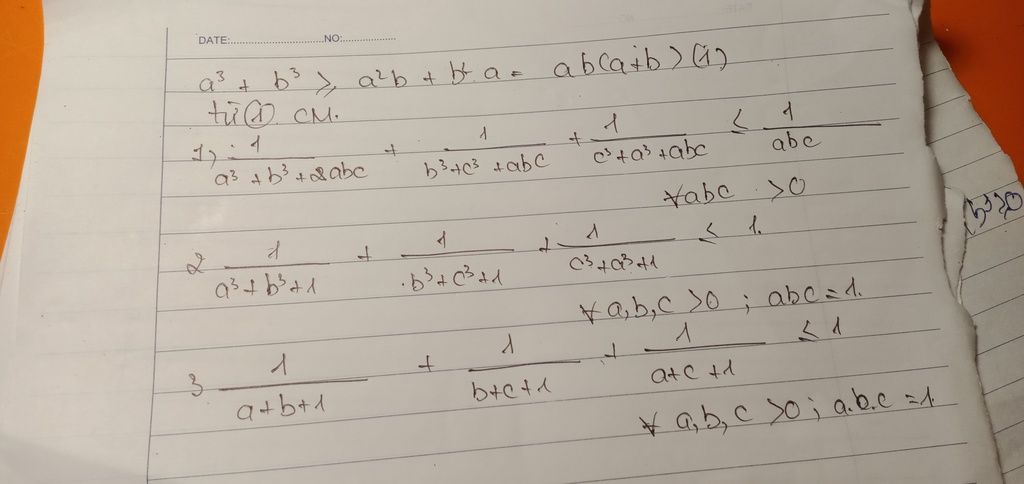 DATE:..............................NO:..................
a³ + b³ ≥ a²b + b²a = ab(a+b) (1)
từ (1) CM.
1, 1/(a³ + b³ + abc) + 1/(b³ + c³ + abc) + 1/(c³ + a³ + abc) ≤ 1/abc
∀abc > 0
2 1/(a³ + b³ + 1) + 1/(b³ + c³ + 1) + 1/(c³ + a³ + 1) ≤ 1.
∀ a,b,c > 0 ; abc = 1.
3 1/(a + b + 1) + 1/(b + c + 1) + 1/(a + c + 1) ≤ 1
∀ a,b,c > 0 ; a.b.c = 1